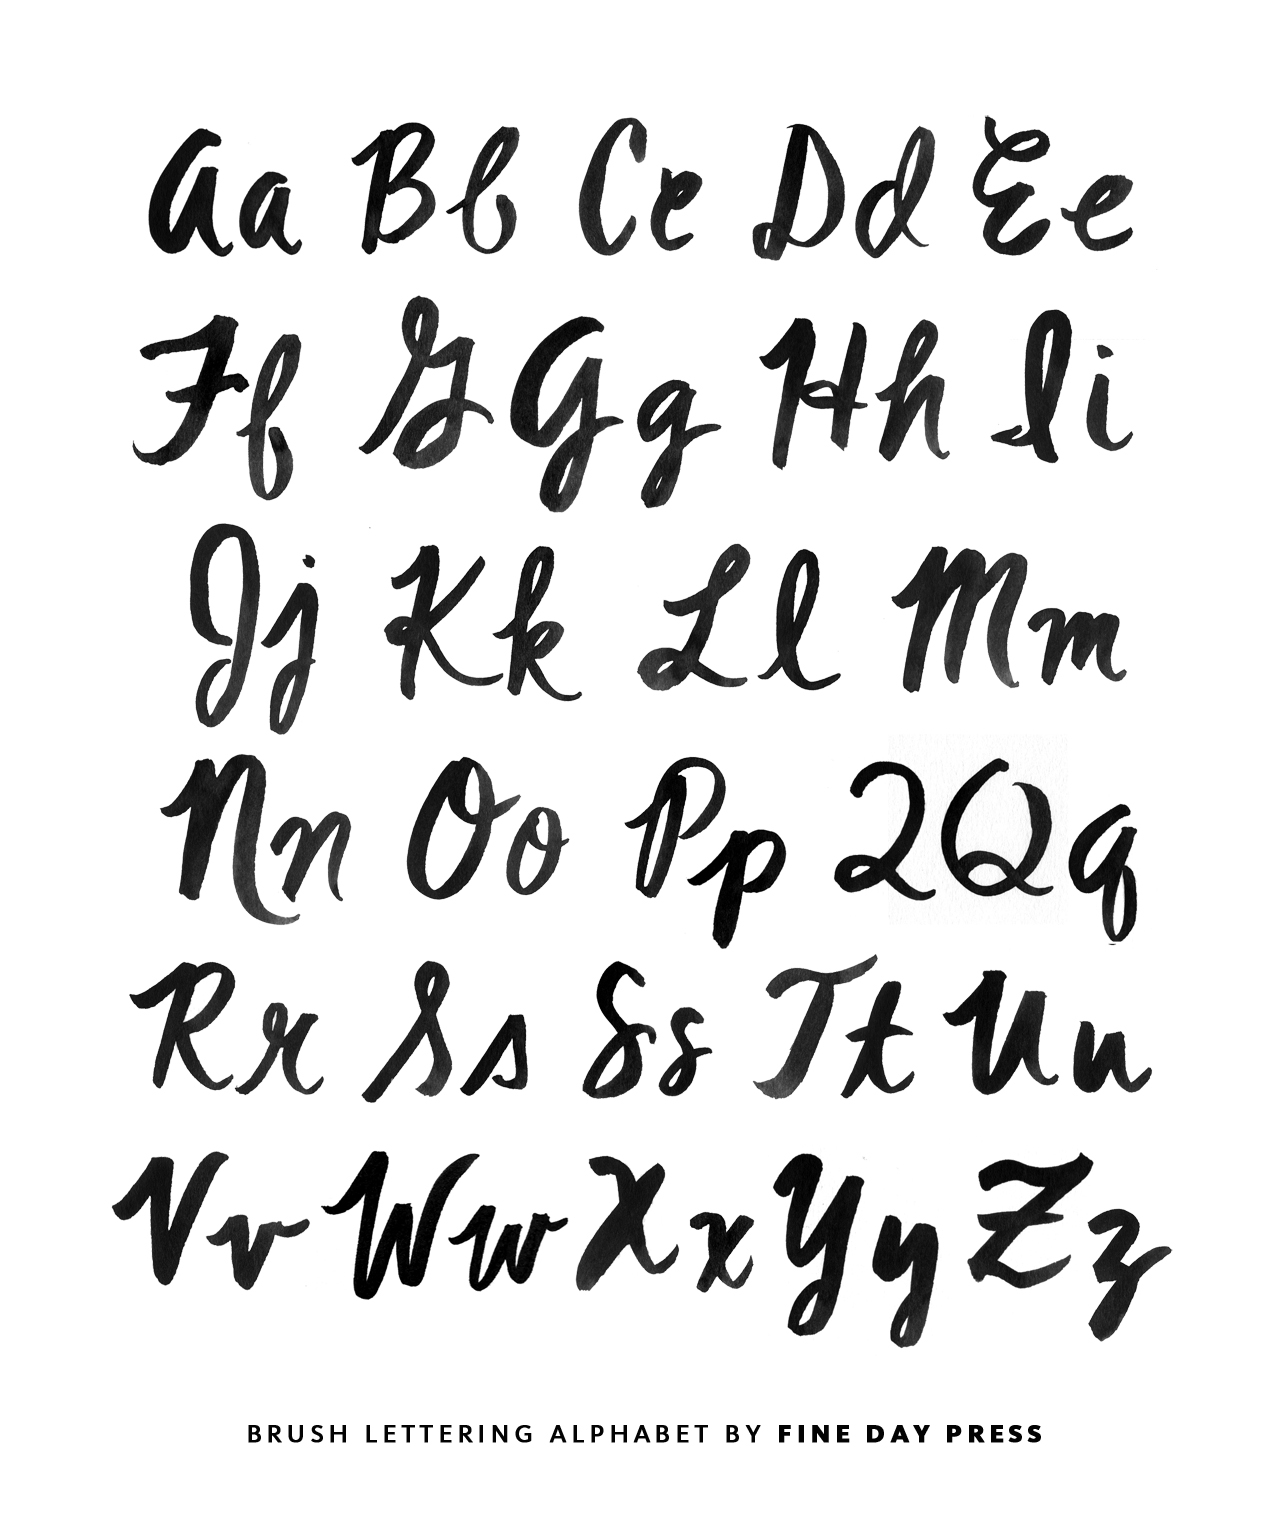 Aa Bb Cc Dd Ee
Ff G G g Hh Ii
Jj Kk Ll Mm
Nn Oo Pp Q Q q
Rr Ss Ss Tt Uu
Vv Ww Xx Yy Zz
BRUSH LETTERING ALPHABET BY FINE DAY PRESS